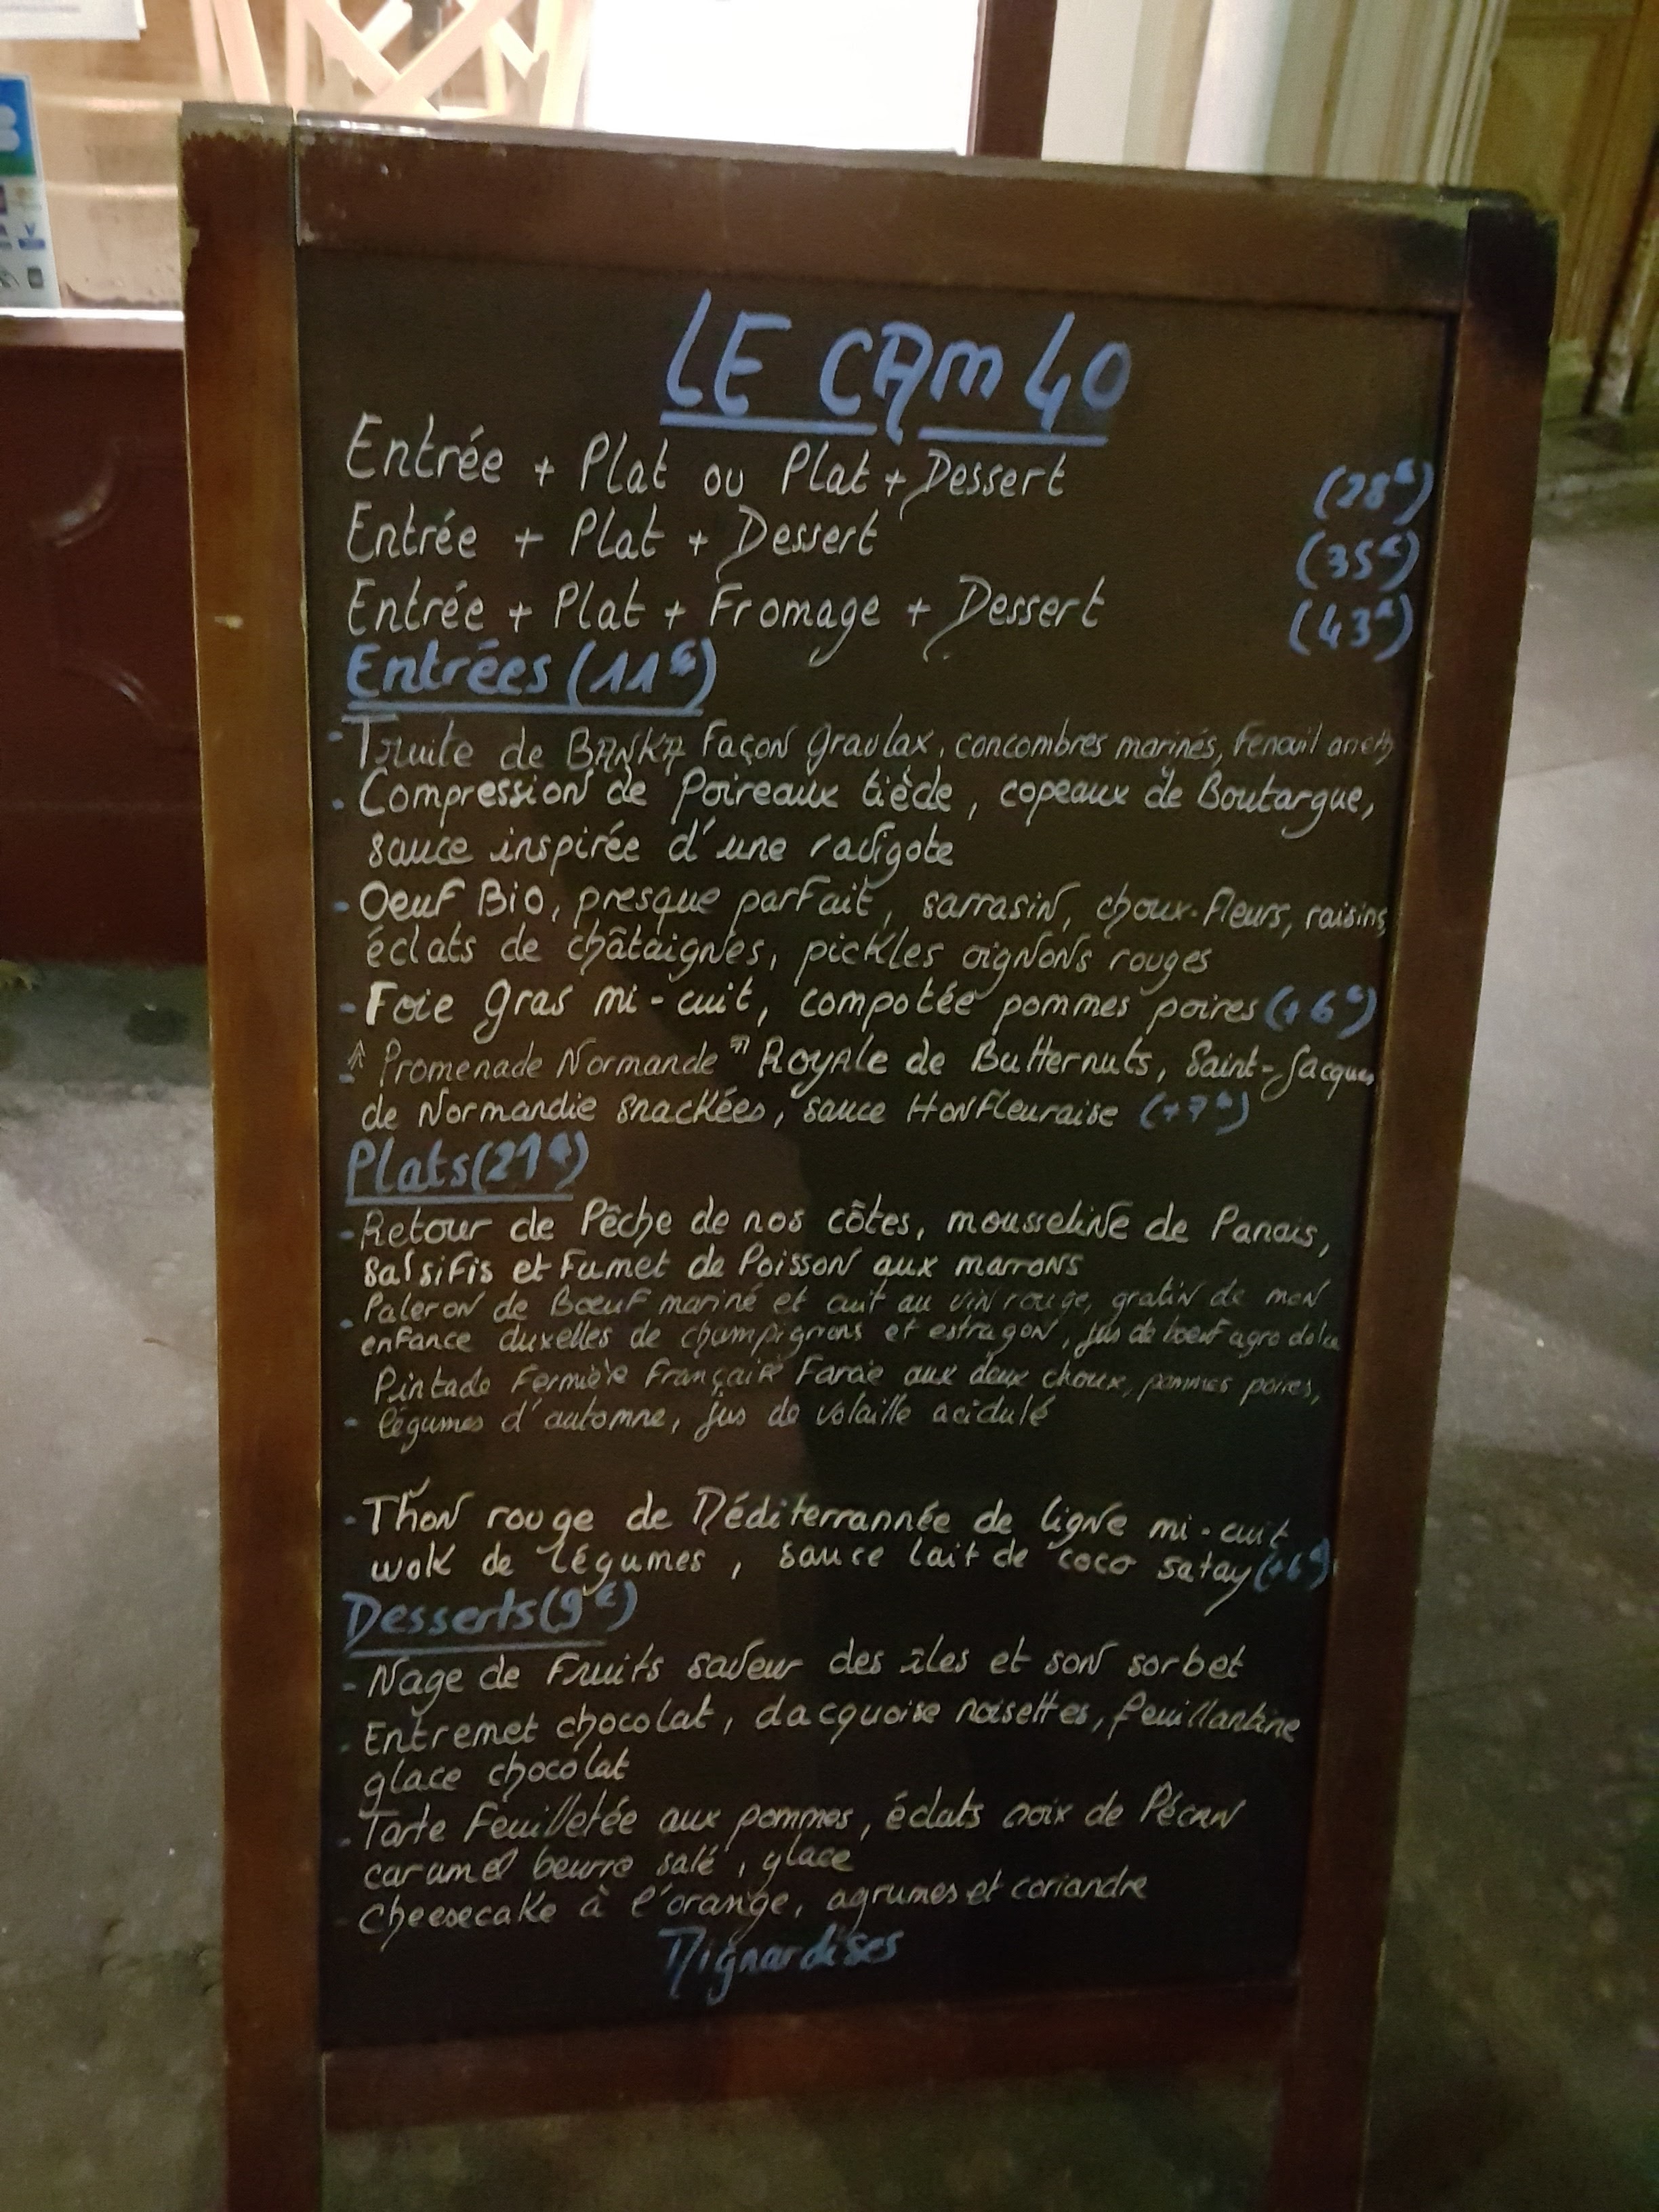 LE CAM 40
Entrée + Plat ou Plat + Dessert (28€)
Entrée + Plat + Dessert (35€)
Entrée + Plat + Fromage + Dessert (43€)
Entrées (11€)
- Truite de BANKA Façon gravlax, concombres marinés, Fenouil aneth
- Compression de Poireaux tiède, copeaux de Boutargue,
sauce inspirée d'une ravigote
- Oeuf Bio, presque parfait, sarrasin, choux-fleurs, raisins,
éclats de châtaignes, pickles oignons rouges
- Foie gras mi-cuit, compotée pommes poires (+6€)
- "Promenade Normande" ROYALE de Butternuts, Saint-Jacques
de Normandie snackées, sauce Honfleuraise (+7€)
Plats (21€)
- Retour de Pêche de nos côtes, mousseline de Panais,
Salsifis et Fumet de Poisson aux marrons
- Paleron de Boeuf mariné et cuit au vin rouge, gratin de mon
enfance duxelles de champignons et estragon, jus de boeuf agro dolce
Pintade Fermière Française Farcie aux deux choux, pommes poires,
- légumes d'automne, jus de volaille acidulé
- Thon rouge de Méditerrannée de ligne mi-cuit
wok de légumes, sauce lait de coco satay (+6€)
Desserts (9€)
- Nage de Fruits saveur des îles et son sorbet
- Entremet chocolat, dacquoise noisettes, feuillantine
glace chocolat
- Tarte Feuilletée aux pommes, éclats noix de Pécan
caramel beurre salé, glace
- Cheesecake à l'orange, agrumes et coriandre
Mignardises